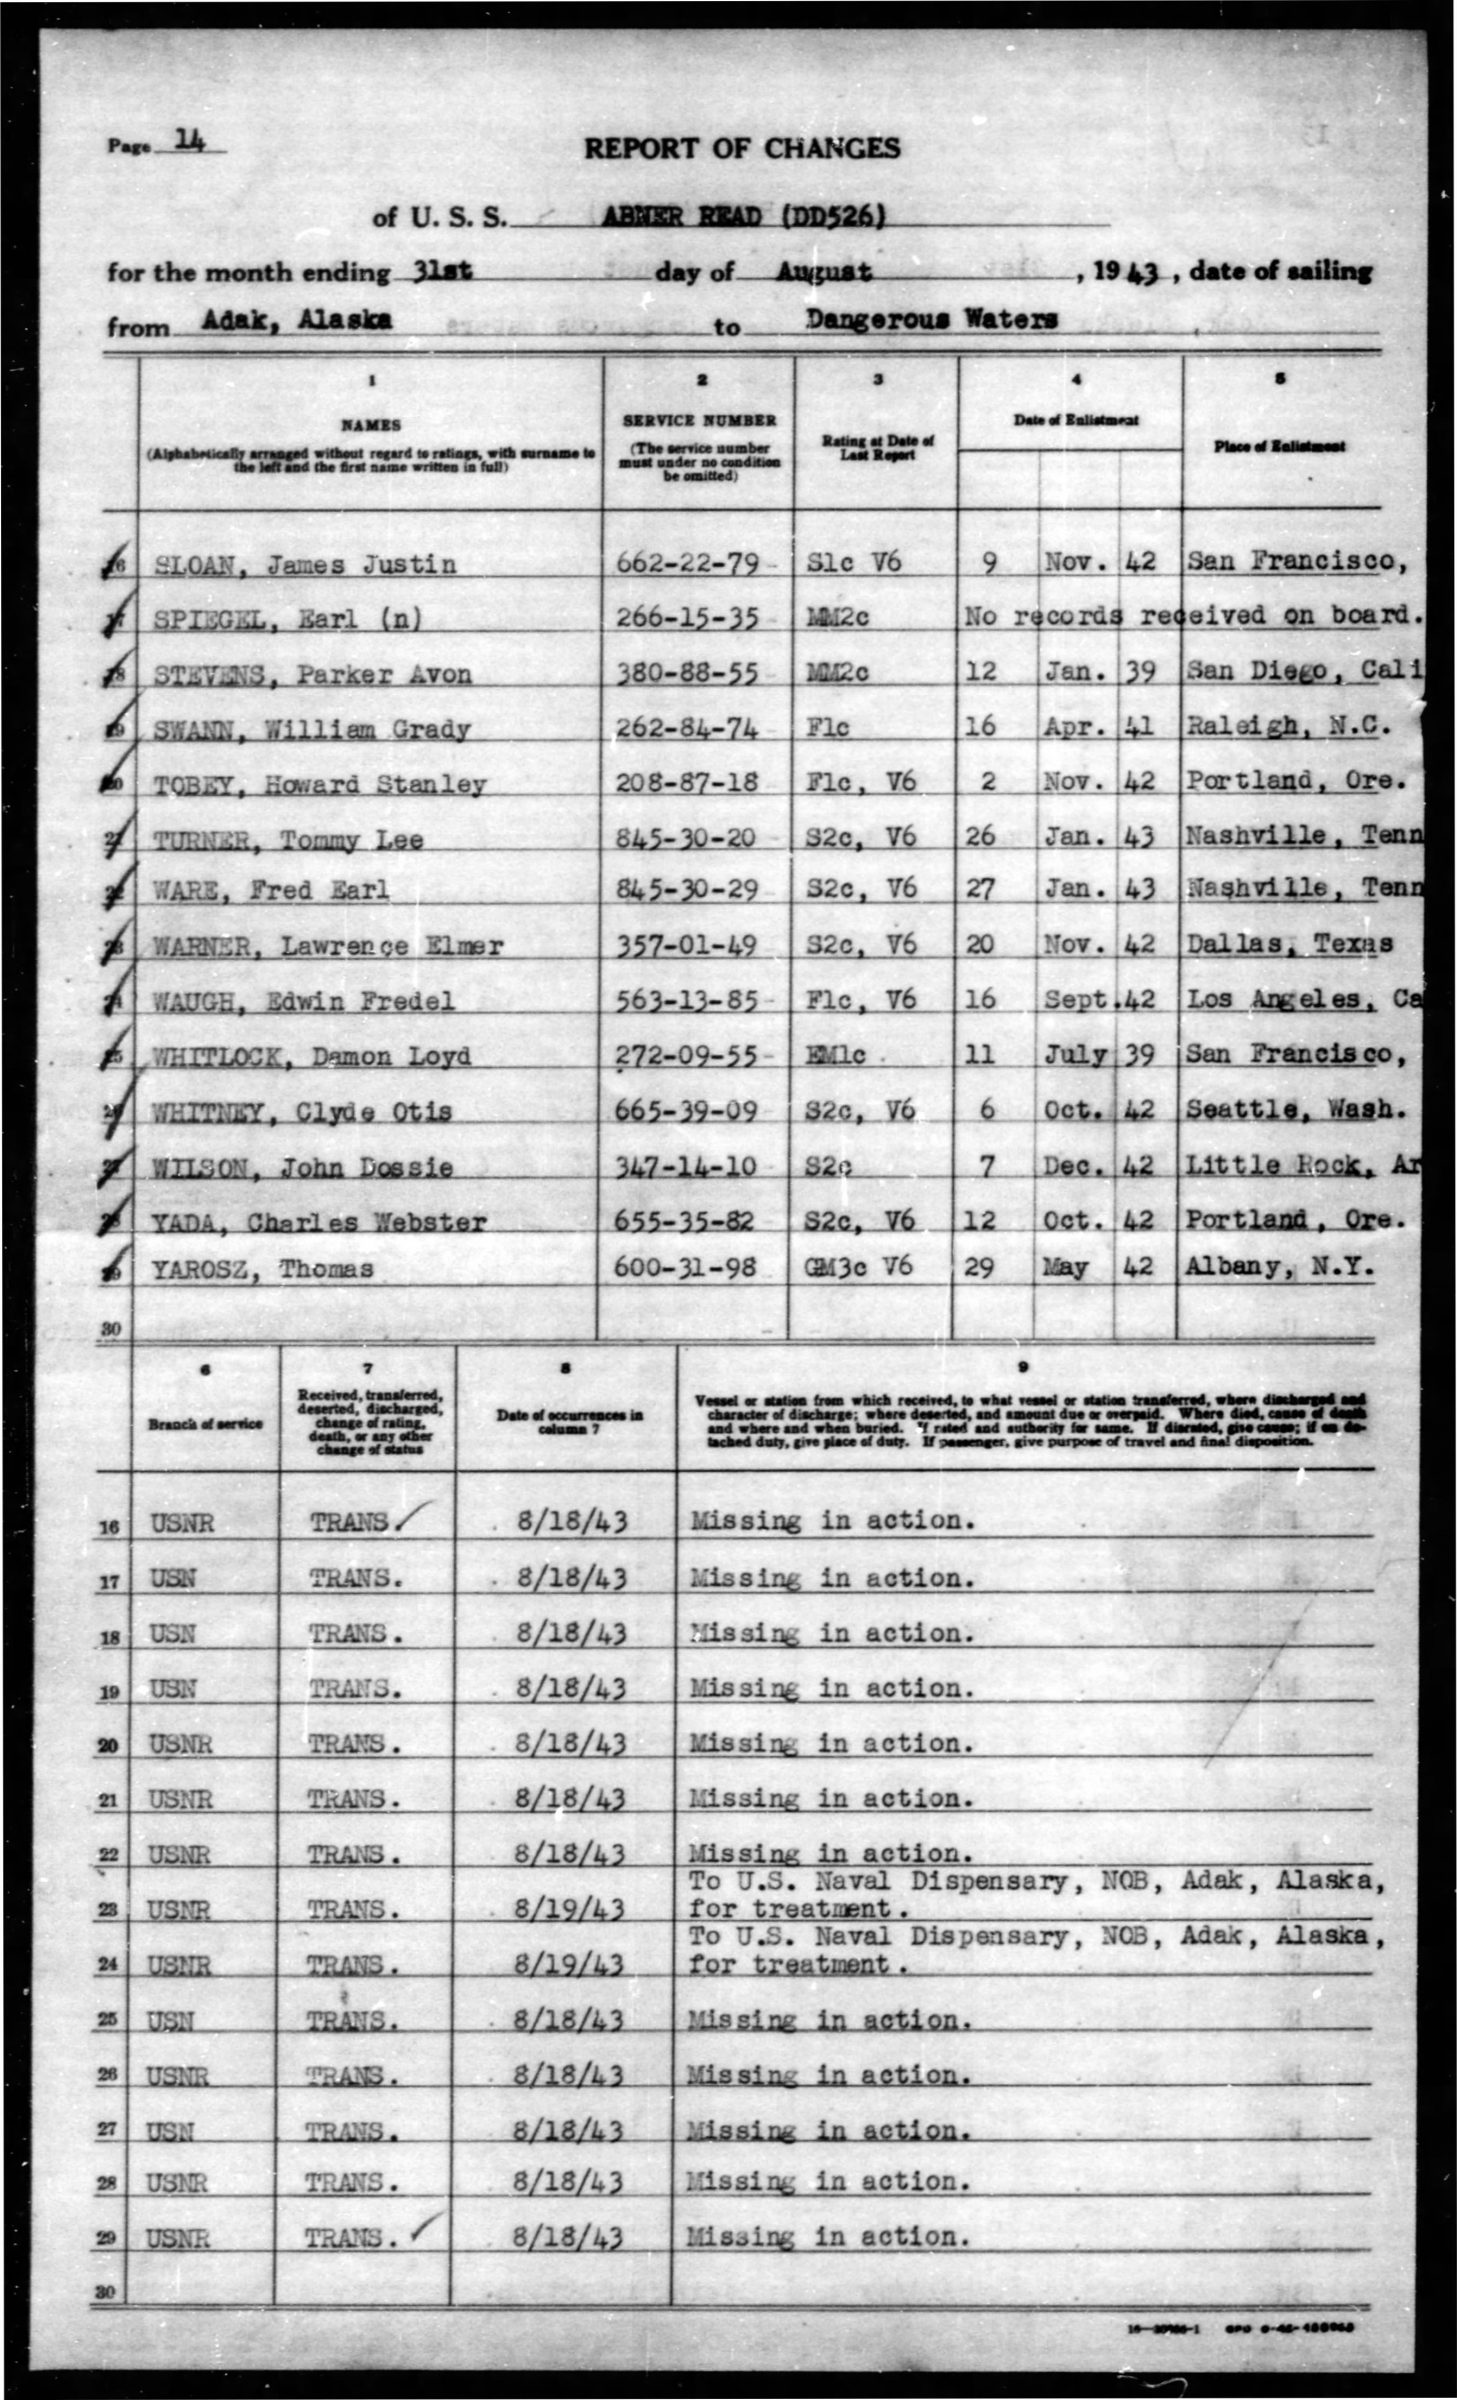 Page 14
REPORT OF CHANGES
of U. S. S. ABNER READ (DD526)
for the month ending 31st day of August , 1943 , date of sailing
from Adak, Alaska to Dangerous Waters
1 2 3 4 5
NAMES
(Alphabetically arranged without regard to ratings, with surname to
the left and the first name written in full)
SERVICE NUMBER
(The service number
must under no condition
be omitted)
Rating at Date of
Last Report
Date of Enlistment
Place of Enlistment
16 SLOAN, James Justin 662-22-79 S1c V6 9 Nov. 42 San Francisco,
17 SPIEGEL, Earl (n) 266-15-35 MM2c No records received on board.
18 STEVENS, Parker Avon 380-88-55 MM2c 12 Jan. 39 San Diego, Cali
19 SWANN, William Grady 262-84-74 F1c 16 Apr. 41 Raleigh, N.C.
20 TOBEY, Howard Stanley 208-87-18 F1c, V6 2 Nov. 42 Portland, Ore.
21 TURNER, Tommy Lee 845-30-20 S2c, V6 26 Jan. 43 Nashville, Tenn
22 WARE, Fred Earl 845-30-29 S2c, V6 27 Jan. 43 Nashville, Tenn
23 WARNER, Lawrence Elmer 357-01-49 S2c, V6 20 Nov. 42 Dallas, Texas
24 WAUGH, Edwin Fredel 563-13-85 F1c, V6 16 Sept. 42 Los Angeles, Ca
25 WHITLOCK, Damon Loyd 272-09-55 EM1c 11 July 39 San Francisco,
26 WHITNEY, Clyde Otis 665-39-09 S2c, V6 6 Oct. 42 Seattle, Wash.
27 WILSON, John Dossie 347-14-10 S2c 7 Dec. 42 Little Rock, Ar
28 YADA, Charles Webster 655-35-82 S2c, V6 12 Oct. 42 Portland, Ore.
29 YAROSZ, Thomas 600-31-98 GM3c V6 29 May 42 Albany, N.Y.
30
6 7 8 9
Branch of service
Received, transferred,
deserted, discharged,
change of rating,
death, or any other
change of status
Date of occurrences in
column 7
Vessel or station from which received, to what vessel or station transferred, where discharged and
character of discharge; where deserted, and amount due or overpaid. Where died, cause of death
and where and when buried. If rated and authority for same. If disrated, give cause; if on de-
tached duty, give place of duty. If passenger, give purpose of travel and final disposition.
16 USNR TRANS. 8/18/43 Missing in action.
17 USN TRANS. 8/18/43 Missing in action.
18 USN TRANS. 8/18/43 Missing in action.
19 USN TRANS. 8/18/43 Missing in action.
20 USNR TRANS. 8/18/43 Missing in action.
21 USNR TRANS. 8/18/43 Missing in action.
22 USNR TRANS. 8/18/43 Missing in action.
To U.S. Naval Dispensary, NOB, Adak, Alaska,
23 USNR TRANS. 8/19/43 for treatment.
To U.S. Naval Dispensary, NOB, Adak, Alaska,
24 USNR TRANS. 8/19/43 for treatment.
25 USN TRANS. 8/18/43 Missing in action.
26 USNR TRANS. 8/18/43 Missing in action.
27 USN TRANS. 8/18/43 Missing in action.
28 USNR TRANS. 8/18/43 Missing in action.
29 USNR TRANS. 8/18/43 Missing in action.
30
GPO